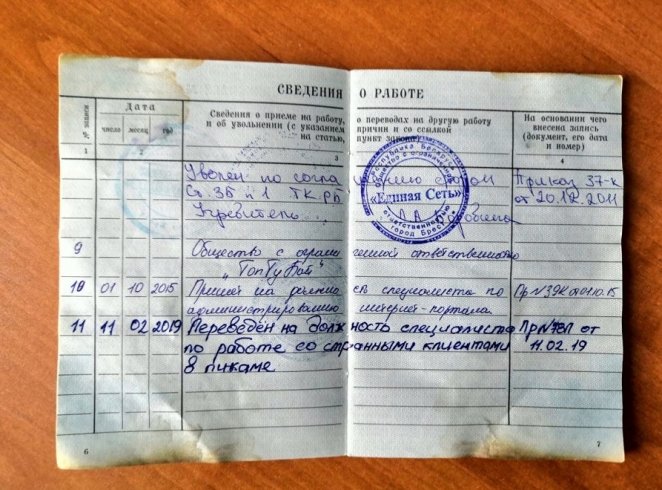 СВЕДЕНИЯ О РАБОТЕ
№ записи
Дата
число месяц год
Сведения о приеме на работу, о переводах на другую работу
и об увольнении (с указанием причин и со ссылкой
на статью, пункт закона)
На основании чего
внесена запись
(документ, его дата
и номер)
1 2 3 4
Уволен по соглашению сторон
Ст. 35 п 1 ТК РБ
Приказ 37-к
от 20.12.2011
Учредитель
Республика Беларусь
"Единая Сеть"
ответственностью
город Брест
9 Общество с ограниченной ответственностью
„ТопТуБай"
10 01 10 2015 Принят на должность специалиста по
администрированию интернет-портала
11 11 02 2019 Переведён на должность специалиста Пр
по работе со странными клиентами 11.02.19
в пикаме
6
7